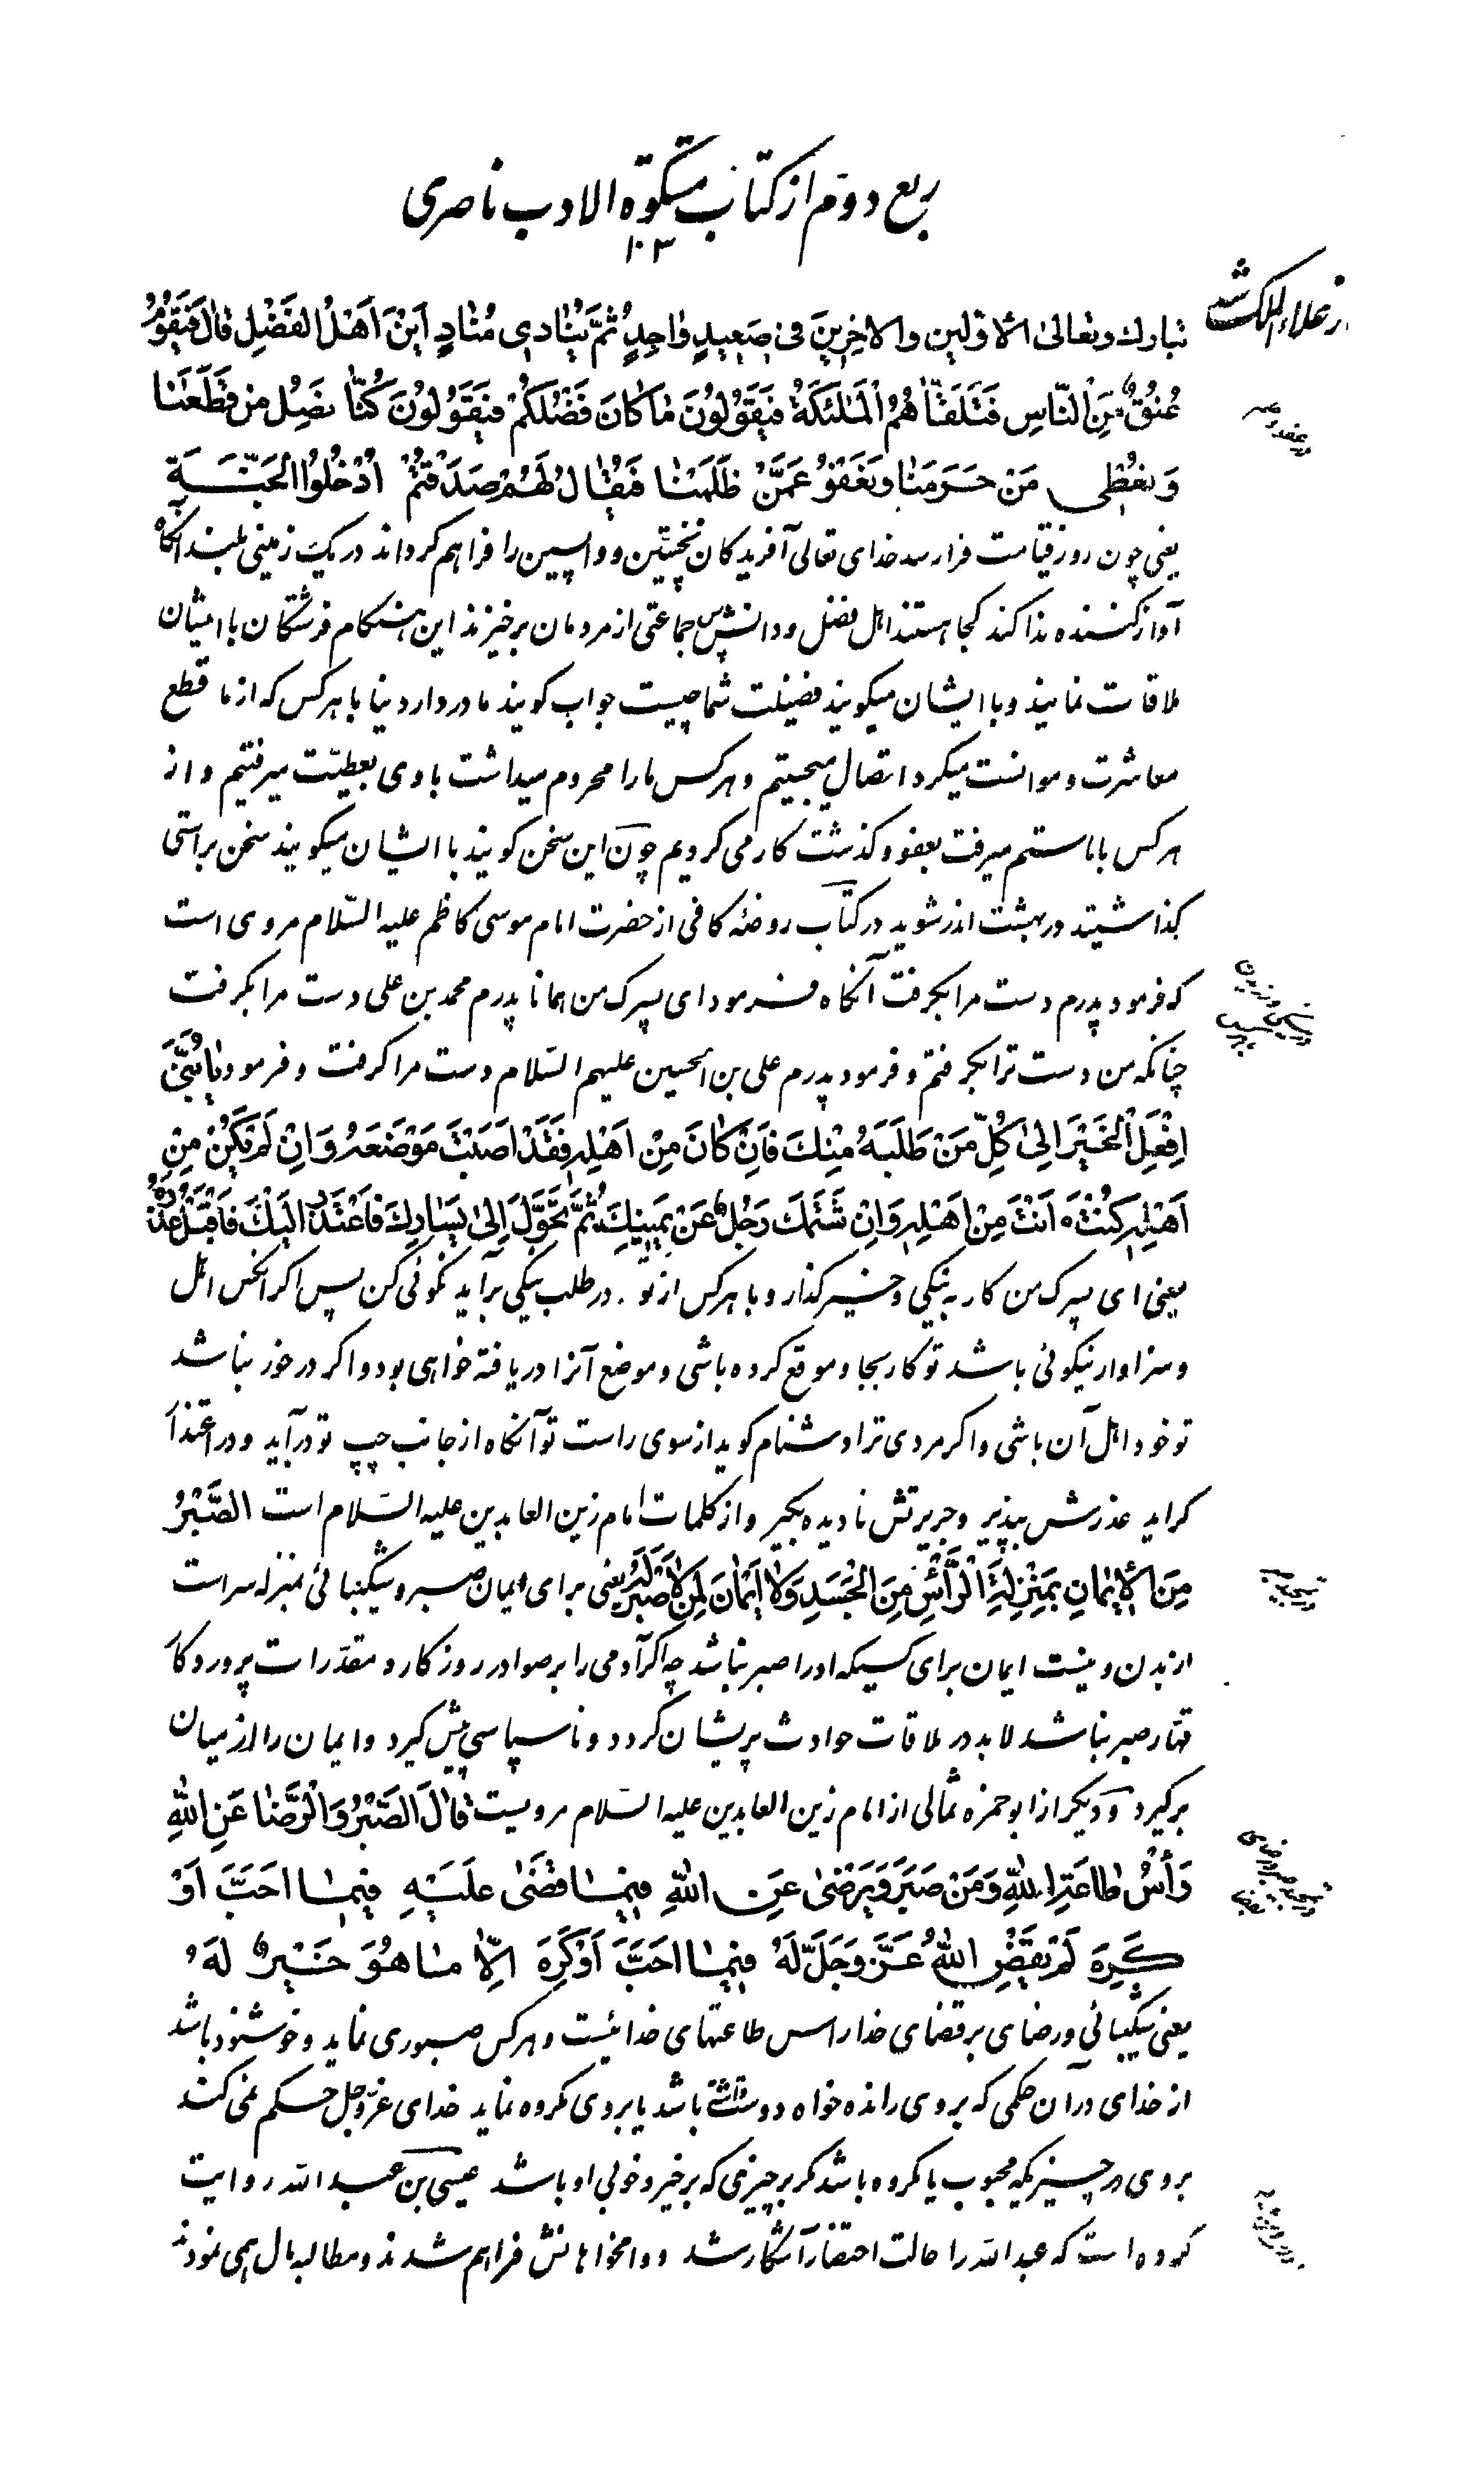 ربع دوّم از کتاب مشکوة الادب ناصری
۱۰۳
تبارك وتعالى الاوّلين والاخِرينَ فى صَعيدٍ واحِدٍ ثُمَّ يُنادى مُنادٍ اَيْنَ اَهْلُ الفَضْلِ قالَ فَيَقُومُ
عُنُقٌ مِنَ النّاسِ فَتَلَقّاهُمُ الْمَلائكَةُ فَيَقُولُونَ ما كانَ فَضْلُكُمْ فَيَقُولُونَ كُنّا نصِلُ من قَطَعَنا
وَنعْطى مَنْ حَرَمَنا ونَعْفُوْ عَمَّنْ ظَلَمَنا فَيُقالُ لَهُمْ صَدَقْتُمْ اُدْخُلُوا الجَنَّةَ
یعنی چون روز قیامت فرا رسد خدای تعالی آفریدکان نخستین و واپسین را فراهم کرداند در یک زمینی بلند آنکاه
آواز کننده ندا کند کجا هستند اهل فضل و دانش پس جماعتی از مردمان برخیزند این هنکام فرشتکان با ایشان
ملاقات نمایند و با ایشان میکویند فضیلت شما چیست جواب کویند ما در دار دنیا با هر کس که از ما قطع
معاشرت و موانست میکرد اتصال میجستیم و هر کس ما را محروم میداشت با وی بعطیّت میرفتیم و از
هر کس با ما ستم میرفت بعفو و کذشت کار می کردیم چون این سخن کویند با ایشان میکویند سخن براستی
کذاشتید در بهشت اندر شوید در کتاب روضهٔ کافی از حضرت امام موسی کاظم علیه السّلام مروی است
که فرمود پدرم دست مرا بکرفت آنکاه فرمود ای پسرک من همانا پدرم محمد بن علی دست مرا بکرفت
چنانکه من دست ترا بکرفتم و فرمود پدرم علی بن الحسین علیهم السّلام دست مرا کرفت و فرمود يا بُنَىَّ
اِفْعَلِ الْخَيْرَ اِلىٰ كُلِّ مَنْ طَلَبَهُ مِنْكَ فَاِنْ كانَ مِنْ اَهْلِهِ فَقَدْ اَصَبْتَ مَوْضَعَهُ وَاِنْ لَمْ يَكُنْ مِنْ
اَهْلِهِ كُنْتَ اَنْتَ مِنْ اَهْلِهِ وَاِنْ شَتَمَكَ رَجُلٌ عَنْ يَمينِكَ ثُمَّ تَحَوَّلَ اِلىٰ يَسارِكَ فَاعْتَذَرَ اِلَيْكَ فَاقْبَلْ عُذْرَهُ
یعنی ای پسرک من کار به نیکی و خیر کذار و با هر کس از تو در طلب نیکی برآید نکوئی کن پس اکر انکس اهل
و سزاوار نیکوئی باشد تو کار بجا و موقع کرده باشی و موضع آنرا دریافته خواهی بود و اکر در خور نباشد
تو خود اهل آن باشی و اکر مردی ترا دشنام کوید از سوی راست تو آنکاه از جانب چپ تو درآید و در اعتذار
کراید عذرش بپذیر و جریرتش نادیده بکیر و از کلمات امام زین العابدین علیه السّلام است الصَّبْرُ
مِنَ الاِيْمانِ بِمَنْزِلَةِ الرَّأْسِ مِنَ الْجَسَدِ وَلا اِيْمانَ لِمَنْ لا صَبْرَ لَهُ یعنی برای ایمان صبر و شکیبائی بمنزله سر است
از بدن و نیست ایمان برای کسیکه او را صبر نباشد چه اکر آدمی را بر صوادر روزکار و مقدّرات پروردکار
قهّار صبر نباشد لابد در ملاقات حوادث پریشان کردد و ناسپاسی پیش کیرد و ایمان را از میان
برکیرد و دیکر از ابو حمزه ثمالی از امام زین العابدین علیه السّلام مرویست قالَ الصَّبْرُ وَالرَّضا عَنِ اللهِ
رَأْسُ طاعَةِ اللهِ وَمَنْ صَبَرَ وَيَرَضىٰ عَنِ اللهِ فيما قَضىٰ عَلَيْهِ فيما اَحَبَّ اَوْ
كَرِهَ لَمْ يَقْضِ اللهُ عَزَّ وَجَلَّ لَهُ فيما اَحَبَّ اَوْ كَرِهَ اِلّا ما هُوَ خَيْرٌ لَهُ
یعنی شکیبائی و رضای بر قضای خدا راس طاعتهای خدائیست و هر کس صبوری نماید و خوشنود باشد
از خدای در آن حکمی که بر وی رانده خواه دوست داشته باشد یا بر وی مکروه نماید خدای عزّ و جل حکم نمی کند
بر وی در چیزیکه محبوب یا مکروه باشد مکر بر چیزی که بر خیر و خوبی او باشد عیسی بن عبد الله روایت
کرده است که عبد الله را حالت احتضار آشکار شد و وامخواهانش فراهم شدند و مطالبه مال همی نمودند